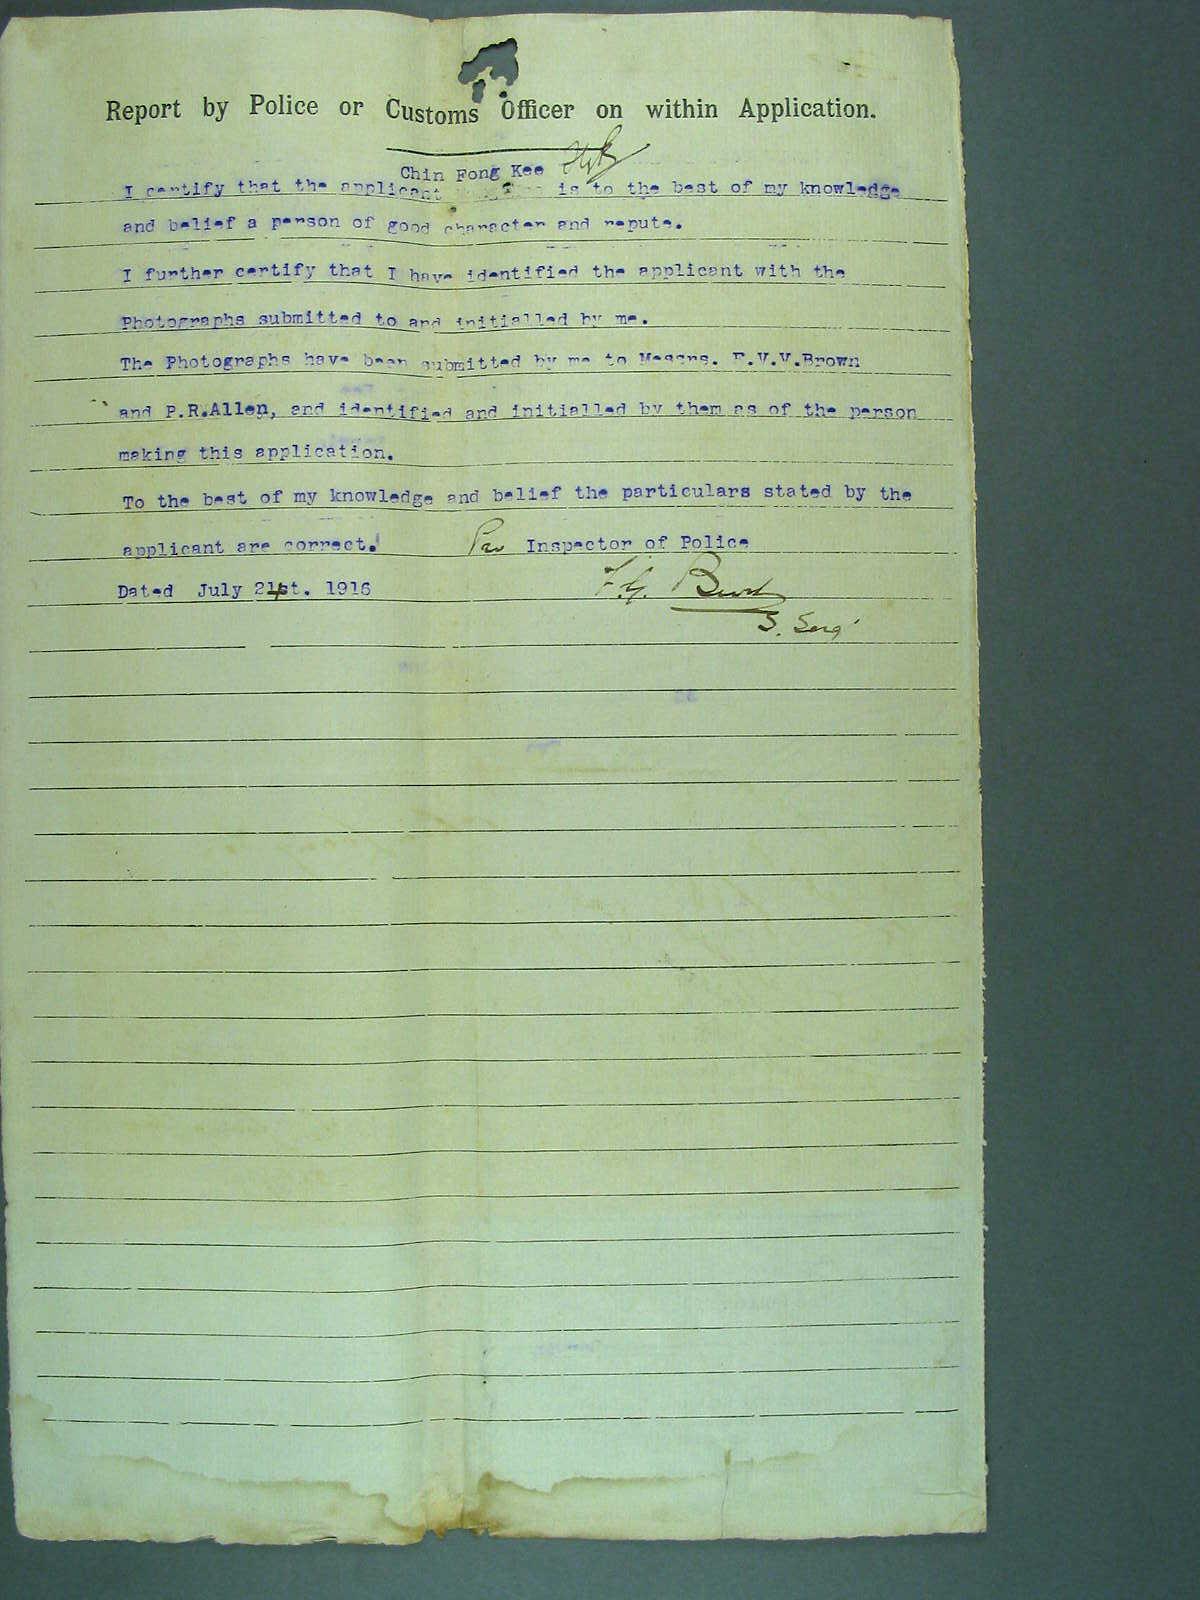 Report by Police or Customs Officer on within Application.
Chin Fong Kee
I certify that the applicant is to the best of my knowledge
and belief a person of good character and repute.
I further certify that I have identified the applicant with the
Photographs submitted to and initialled by me.
The Photographs have been submitted by me to Messrs. F.V.V.Brown
and P.R.Allen, and identified and initialled by them as of the person
making this application.
To the best of my knowledge and belief the particulars stated by the
applicant are correct. Pro Inspector of Police
Dated July 24st. 1916
F.G.
S. Serg